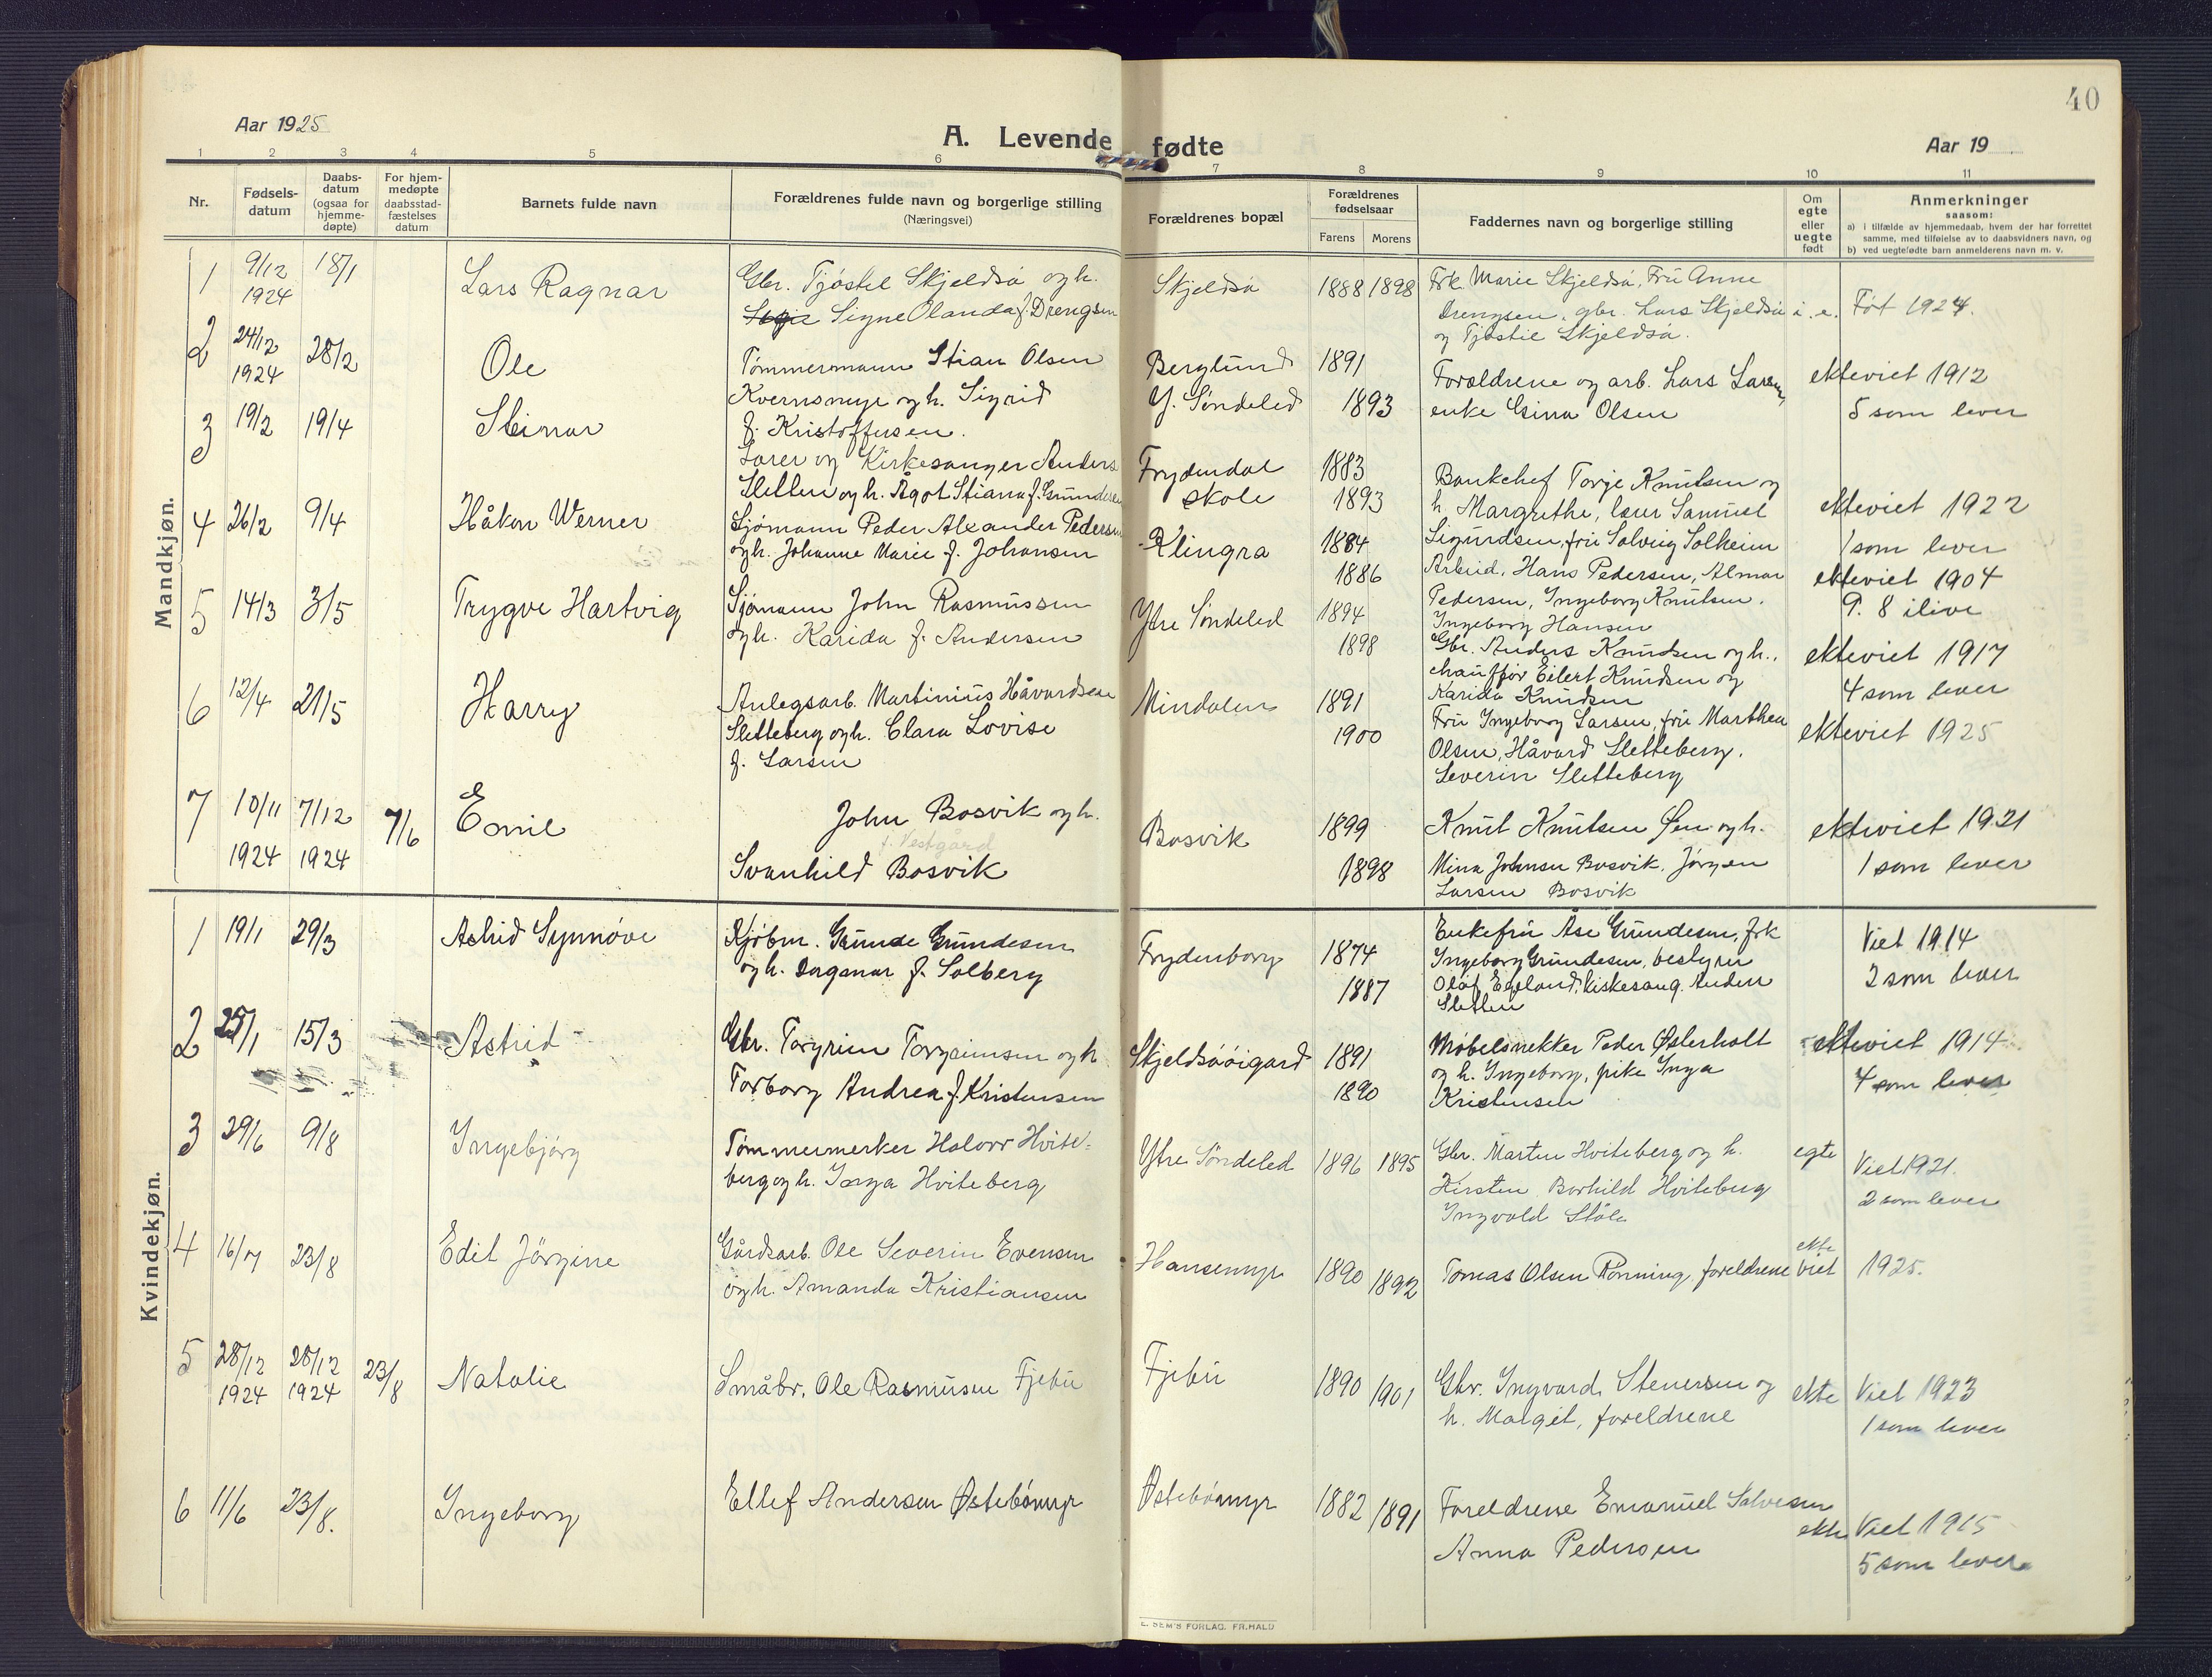 40
Aar 1925
A. Levende fødte
Aar 19
1 2 3 4 5 6 7 8 9 10 11
Nr.
Fødsels-
datum
Daabs-
datum
(ogsaa for
hjemme-
døpte)
For hjem-
medøpte
daabsstad-
fæstelses
datum
Barnets fulde navn
Forældrenes fulde navn og borgerlige stilling
(Næringsvei)
Forældrenes bopæl
Forældrenes
fødselsaar
Farens Morens
Faddernes navn og borgerlige stilling
Om
egte
eller
uegte
født
Anmerkninger
saasom:
a) i tilfælde av hjemmedaab, hvem der har forrettet
samme, med tilføielse av to daabsvidners navn, og
b) ved uegtefødte barn anmelderens navn m. v.
Mandkjøn.
1 9/12 1924 18/1 Lars Ragnar
Gbr. Tjøstel Skjeldså og h.
Signe Olanda f. Drengsen
Skjeldså 1888 1898
Frk. Marie Skjeldså, Fru Anne
Drengsen, gbr. Lars Skjeldså
og Tjøstel Skjeldså.
i. e. Föt 1924.
2 24/12 1924 28/2 Ole
Tømmermann Stian Olsen
Kvernsmyr og h. Sigrid
f. Kristoffersen.
Berglund
Y. Søndeled
1891
1893
Foreldrene og arb. Lars Larsen,
enke Gina Olsen
ekteviet 1912
5 som lever
3 19/2 19/4 Steinar
Lærer og Kirkesanger Anders
Sletten og h. Ågot Stiana f. Grundesen
Frydendal
skole
1883
1893
Bankchef Torje Knutsen og
h. Margrethe, lærer Samuel
Sigurdsen, fru Solveig Solheim
ekteviet 1922
1 som lever
4 26/2 9/4 Håkon Werner
Sjømann Peder Alexander Pedersen
og h. Johanne Marie f. Johansen
Klingra
1884
1886
Arbeid. Hans Pedersen, Almar
Pedersen, Ingeborg Knutsen.
Ingeborg Hansen
ekteviet 1904
9. 8 ilive
5 14/3 3/5 Trygve Hartvig
Sjømann John Rasmussen
og h. Karida f. Andersen
Ytre Søndeled
1894
1898
Gbr. Anders Knudsen og h.,
chauffør Eilert Knudsen og
Karida Knudsen
ekteviet 1917
4 som lever
6 12/4 21/5 Harry
Anlegsarb. Martinius Håvardsen
Sletteberg og h. Clara Lovise
f. Larsen
Mindalen
1891
1900
Fru Ingeborg Larsen, fru Marthea
Olsen, Håvard Sletteberg.
Severin Sletteberg
ekteviet 1925
7 10/11 1924 7/12 1924 7/6 Emil
John Bosvik og h.
f. Vestgård
Svanhild Bosvik
Bosvik
1899
1898
Knut Knutsen Øen og h.
Mina Johnsen Bosvik. Jörgen
Larsen Bosvik
ekteviet 1921
1 som lever
Kvindekjøn.
1 19/1 29/3 Astrid Synnöve
Kjøbm. Gunde Grundesen
og h. Dagmar f. Solberg
Frydenborg
1874
1887
Enkefru Åse Grundesen, frk
Ingeborg Grundesen, bestyrer
Olaf Egeland, kirkesang. Anders
Sletten
Viet 1914
2 som lever
2 25/1 15/3 Astrid
Gbr. Torgrim Torgrimsen og h
Torborg Andrea f. Kristensen
Skjeldsåöigard
1891
1890
Møbelsnekker Peder Østerholt
og h. Ingeborg, pike Inga
Kristensen
ekteviet 1914
4 som lever
3 29/6 9/8 Ingebjörg
Tømmermerker Halvor Hvite-
berg og h. Inga Hviteberg
Ytre Søndeled 1896 1895
Gbr. Marten Hviteberg og h.
Kirsten Borhild Hviteberg
Ingvald Ståle
egte
Viet 1921.
2 som lever
4 16/7 23/8 Edit Jörgine
Gårdsarb. Ole Severin Evensen
og h. Amanda Kristiansen
Hansemyr 1890 1892
Tomas Olsen Rönning, foreldrene
ekte
viet 1925.
5 28/12 1924 28/12 1924 23/8 Natalie
Småbr. Ole Rasmusen Fjebu
Fjebu 1890 1901
Gbr. Ingvard Stenersen og
h. Margit, foreldrene
ekte Viet 1923
1 som lever
6 11/6 23/8. Ingeborg
Ellef Andersen Østebömyr
Østebömyr 1882 1891
Foreldrene Emanuel Salvesen
Anna Pedersen
ekte Viet 1915
5 som lever
E. SEM'S FORLAG. FR.HALD